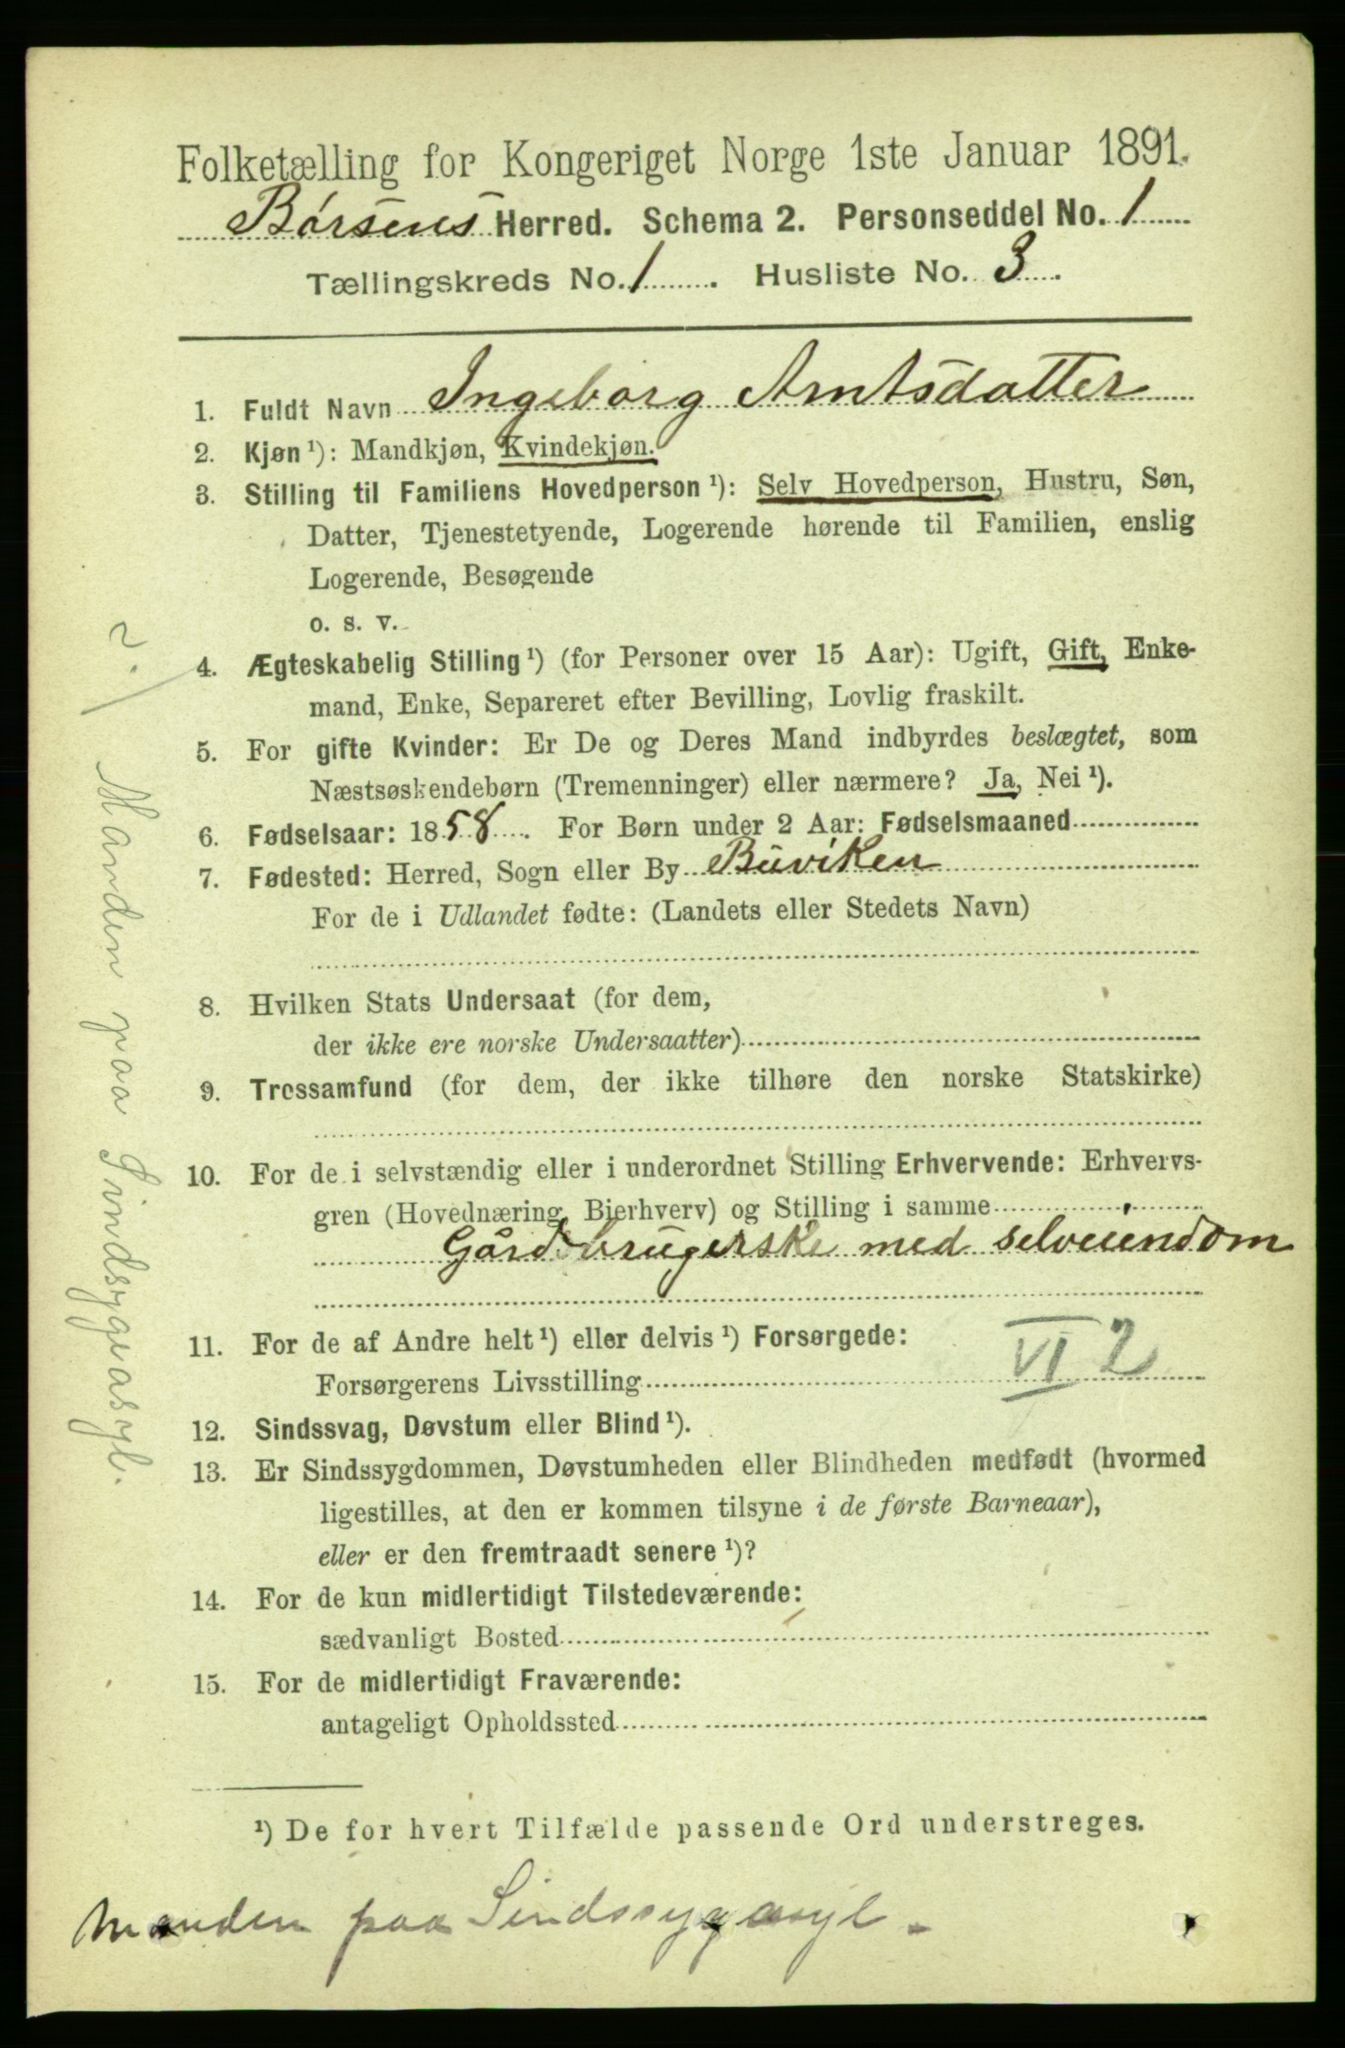 Folketælling for Kongeriget Norge 1ste Januar 1891.
Børsens Herred. Schema 2. Personseddel No. 1
Tællingskreds No. 1. Husliste No. 3.
1. Fuldt Navn Ingeborg Arntsdatter
2. Kjøn ¹): Mandkjøn, Kvindekjøn.
3. Stilling til Familiens Hovedperson ¹): Selv Hovedperson, Hustru, Søn,
Datter, Tjenestetyende, Logerende hørende til Familien, enslig
Logerende, Besøgende
o. s. v.
4. Ægteskabelig Stilling ¹) (for Personer over 15 Aar): Ugift, Gift, Enke-
mand, Enke, Separeret efter Bevilling, Lovlig fraskilt.
5. For gifte Kvinder: Er De og Deres Mand indbyrdes beslægtet, som
Næstsøskendebørn (Tremenninger) eller nærmere? Ja, Nei ¹).
6. Fødselsaar: 1858. For Børn under 2 Aar: Fødselsmaaned
7. Fødested: Herred, Sogn eller By Buviken
For de i Udlandet fødte: (Landets eller Stedets Navn)
8. Hvilken Stats Undersaat (for dem,
der ikke ere norske Undersaatter)
9. Trossamfund (for dem, der ikke tilhøre den norske Statskirke)
10. For de i selvstændig eller i underordnet Stilling Erhvervende: Erhvervs-
gren (Hovednæring, Bierhverv) og Stilling i samme
Gårdbrugerske med selveiendom
11. For de af Andre helt ¹) eller delvis ¹) Forsørgede:
VI 2
Forsørgerens Livsstilling
12. Sindssvag, Døvstum eller Blind ¹).
13. Er Sindssygdommen, Døvstumheden eller Blindheden medfødt (hvormed
ligestilles, at den er kommen tilsyne i de første Barneaar),
eller er den fremtraadt senere ¹)?
14. For de kun midlertidigt Tilstedeværende:
sædvanligt Bosted
15. For de midlertidigt Fraværende:
antageligt Opholdssted
¹) De for hvert Tilfælde passende Ord understreges.
Manden paa Sindssygasyl.
2./ Manden paa Sindsygeasyl.